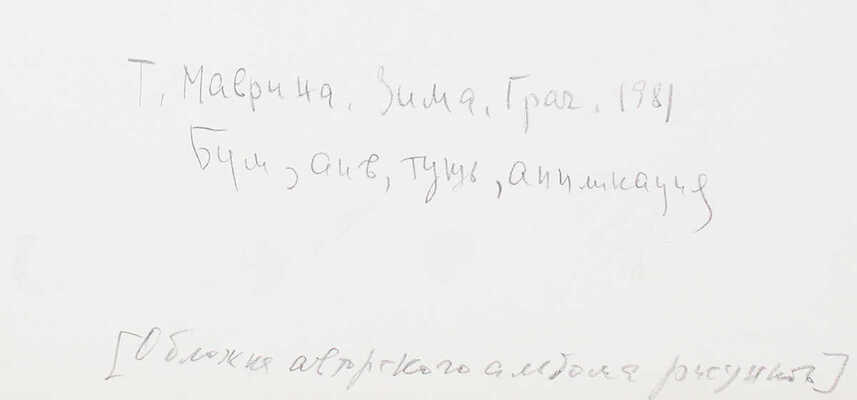 Т. Маврина. Зима. Грач. 1981
Бум, акв, тушь, аппликация
[Обложка авторского альбома рисунков]